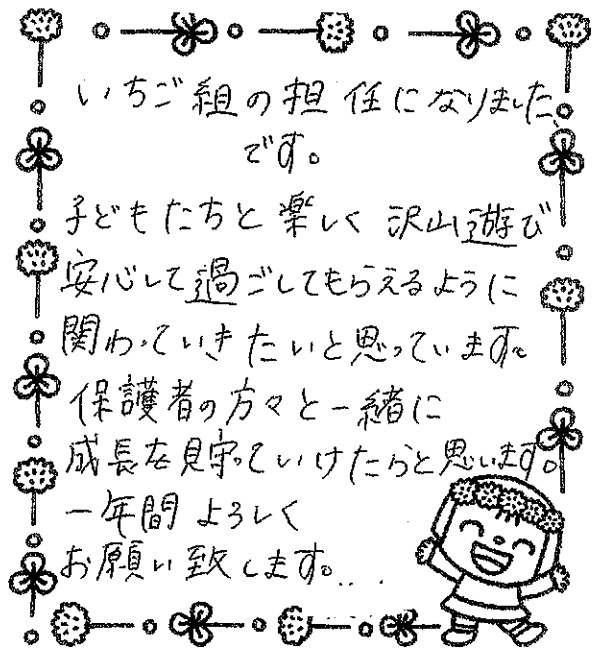 いちご組の担任になりました、
です。
子どもたちと楽しく沢山遊び
安心して過ごしてもらえるように
関わっていきたいと思っています。
保護者の方々と一緒に
成長を見守っていけたらと思います。
一年間よろしく
お願い致します。